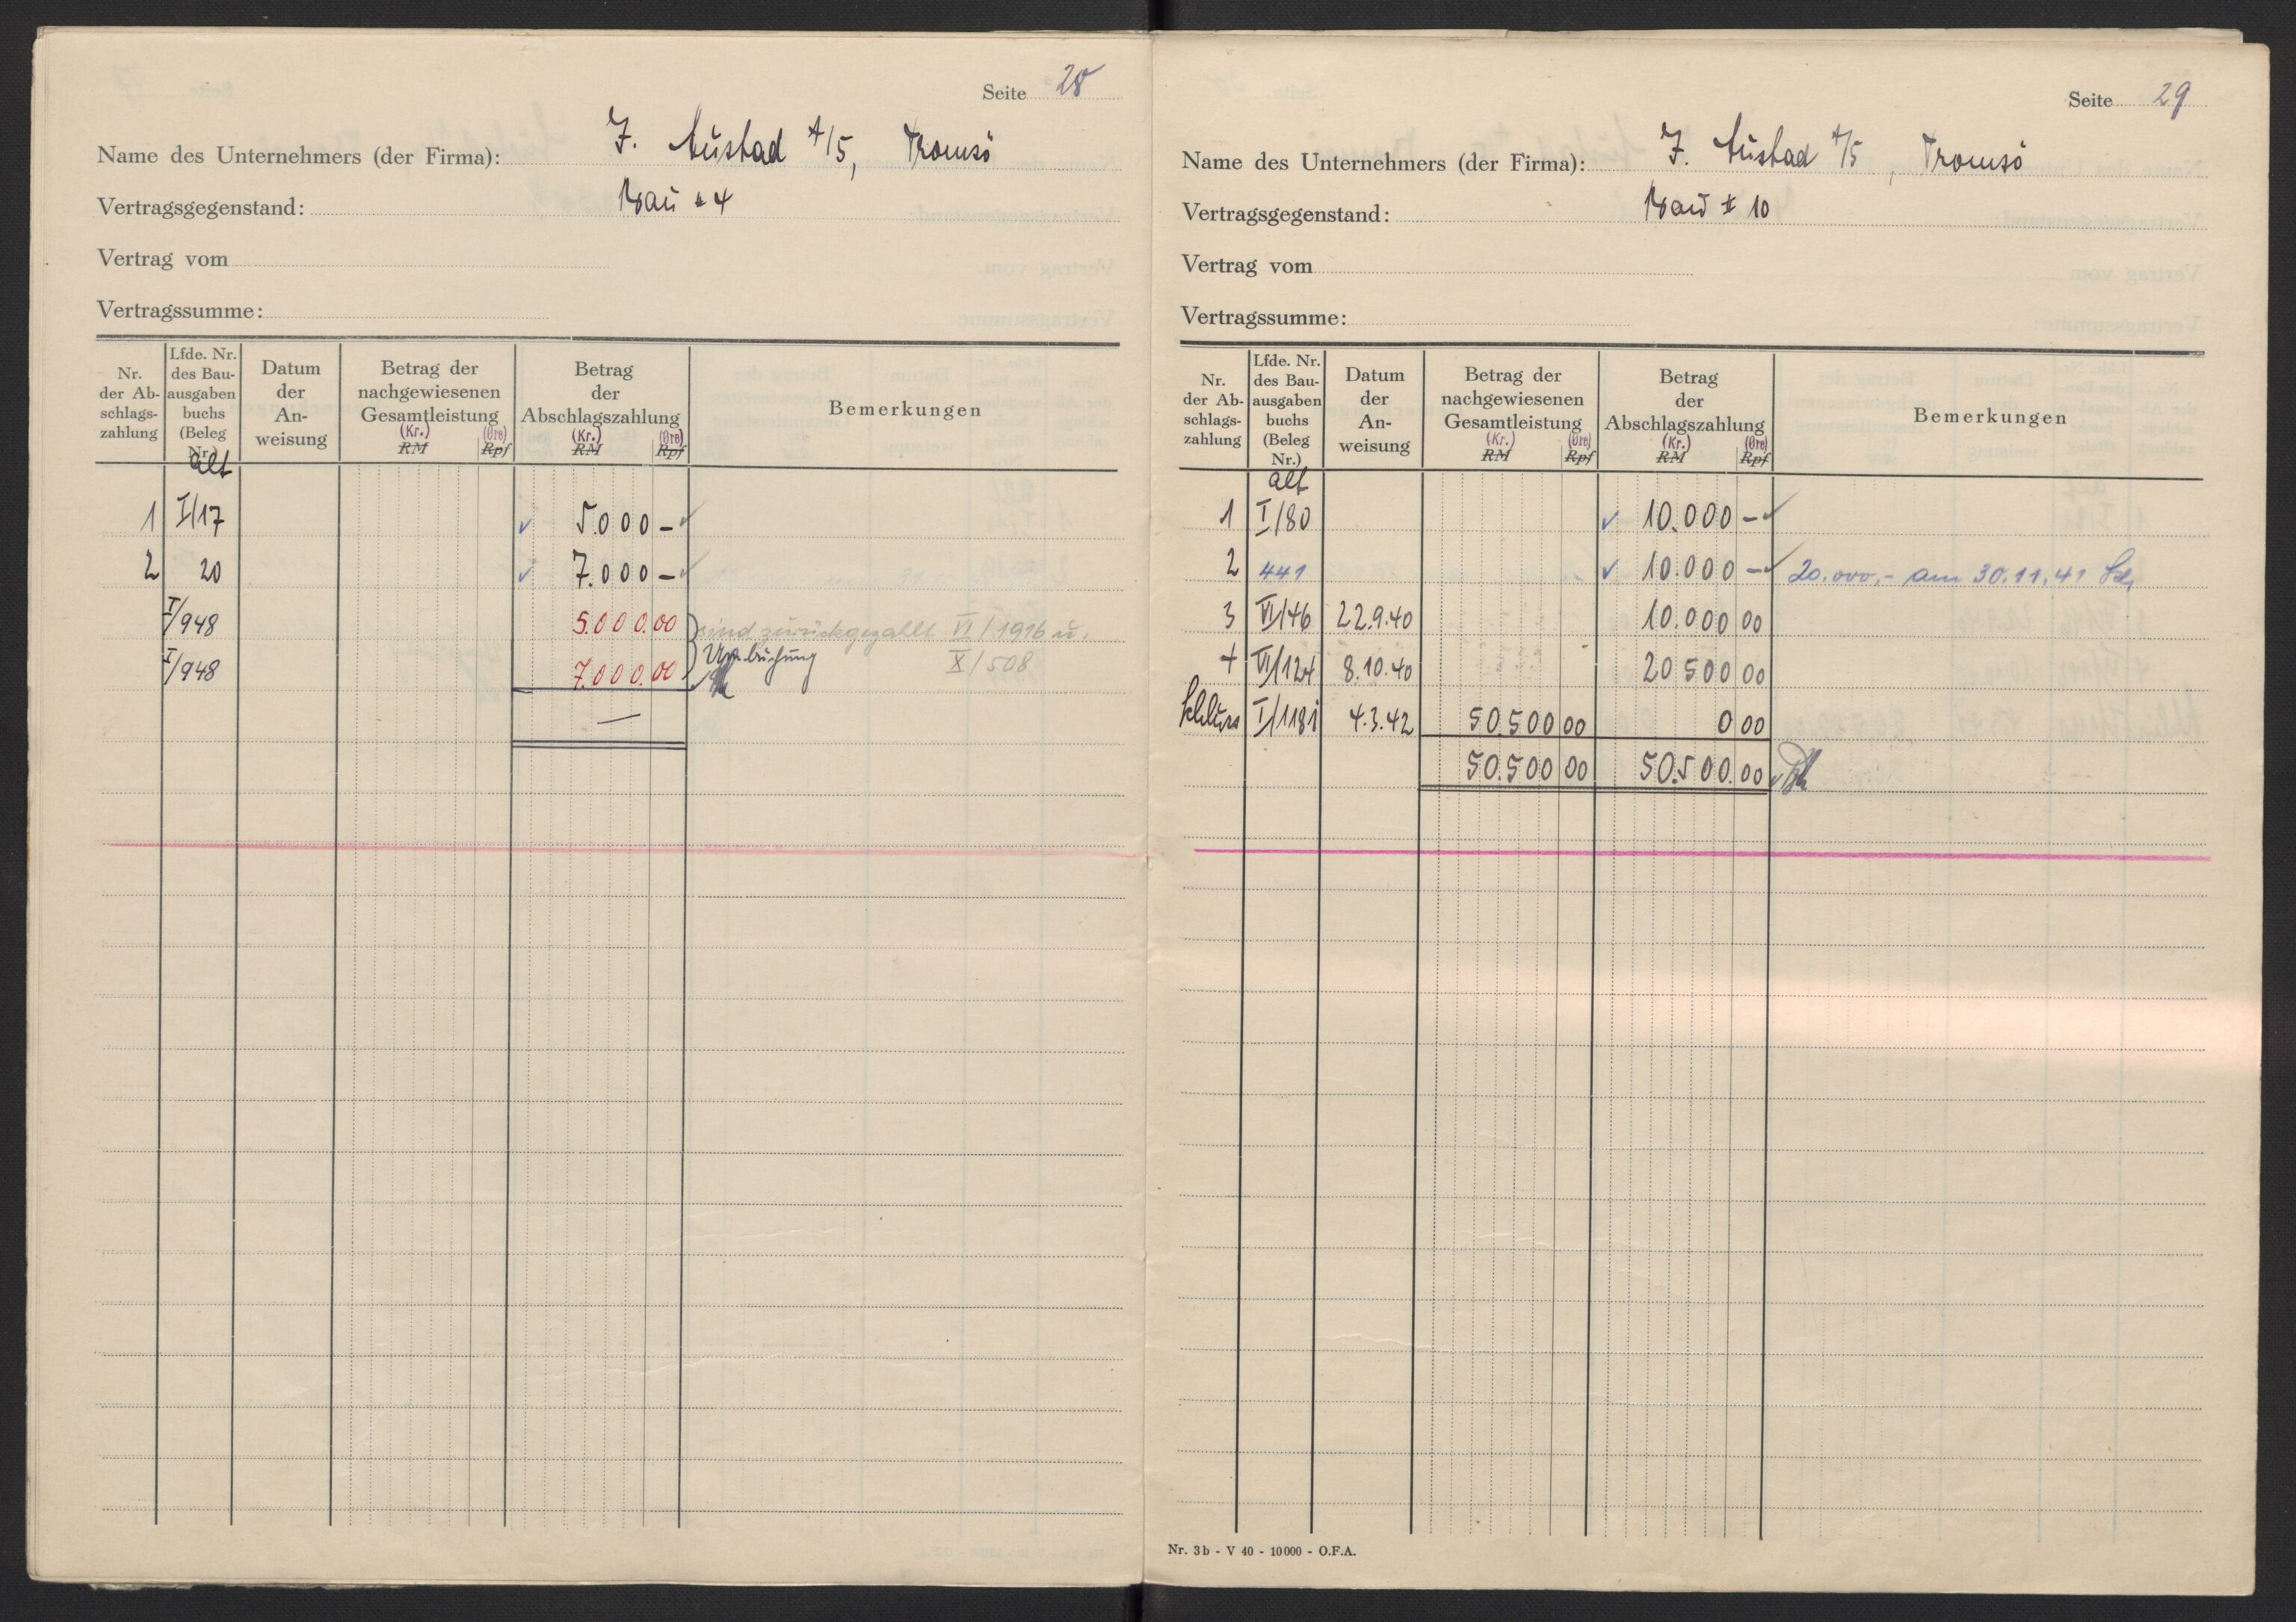 Seite 28
Name des Unternehmers (der Firma): J. Austad A/S, Tromsö
Vertragsgegenstand: Bau # 4
Vertrag vom
Vertragssumme:
Nr. der Abschlagszahlung | Lfde. Nr. des Bauausgabenbuchs (Beleg Nr.) | Datum der Anweisung | Betrag der nachgewiesenen Gesamtleistung (Kr.) RM (Øre) Rpf | Betrag der Abschlagszahlung (Kr.) RM (Øre) Rpf | Bemerkungen
alt
1 I/17 5.000 -
2 20 7.000 -
I/948 5.000.00 sind zurückgezahlt VI/1916 u.
I/948 7.000.00 Umbuchung X/508
—
Seite 29
Name des Unternehmers (der Firma): J. Austad A/S, Tromsö
Vertragsgegenstand: Bau # 10
Vertrag vom
Vertragssumme:
Nr. der Abschlagszahlung | Lfde. Nr. des Bauausgabenbuchs (Beleg Nr.) | Datum der Anweisung | Betrag der nachgewiesenen Gesamtleistung (Kr.) RM (Øre) Rpf | Betrag der Abschlagszahlung (Kr.) RM (Øre) Rpf | Bemerkungen
alt
1 I/80 10.000 -
2 441 10.000 - 20.000,- am 30.11.41
3 VI/46 22.9.40 10.000 00
4 VI/124 8.10.40 20 500 00
Schluss I/1181 4.3.42 50.500 00 0 00
50.500 00 50.500.00
Nr. 3b - V 40 - 10000 - O.F.A.